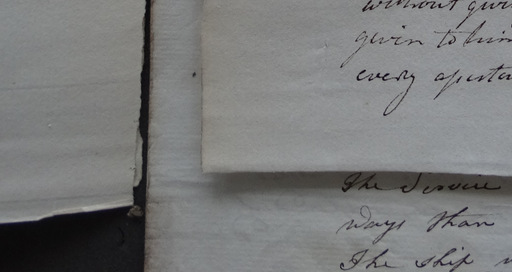 without givi
given to him
every
The Service
ways than
The ship